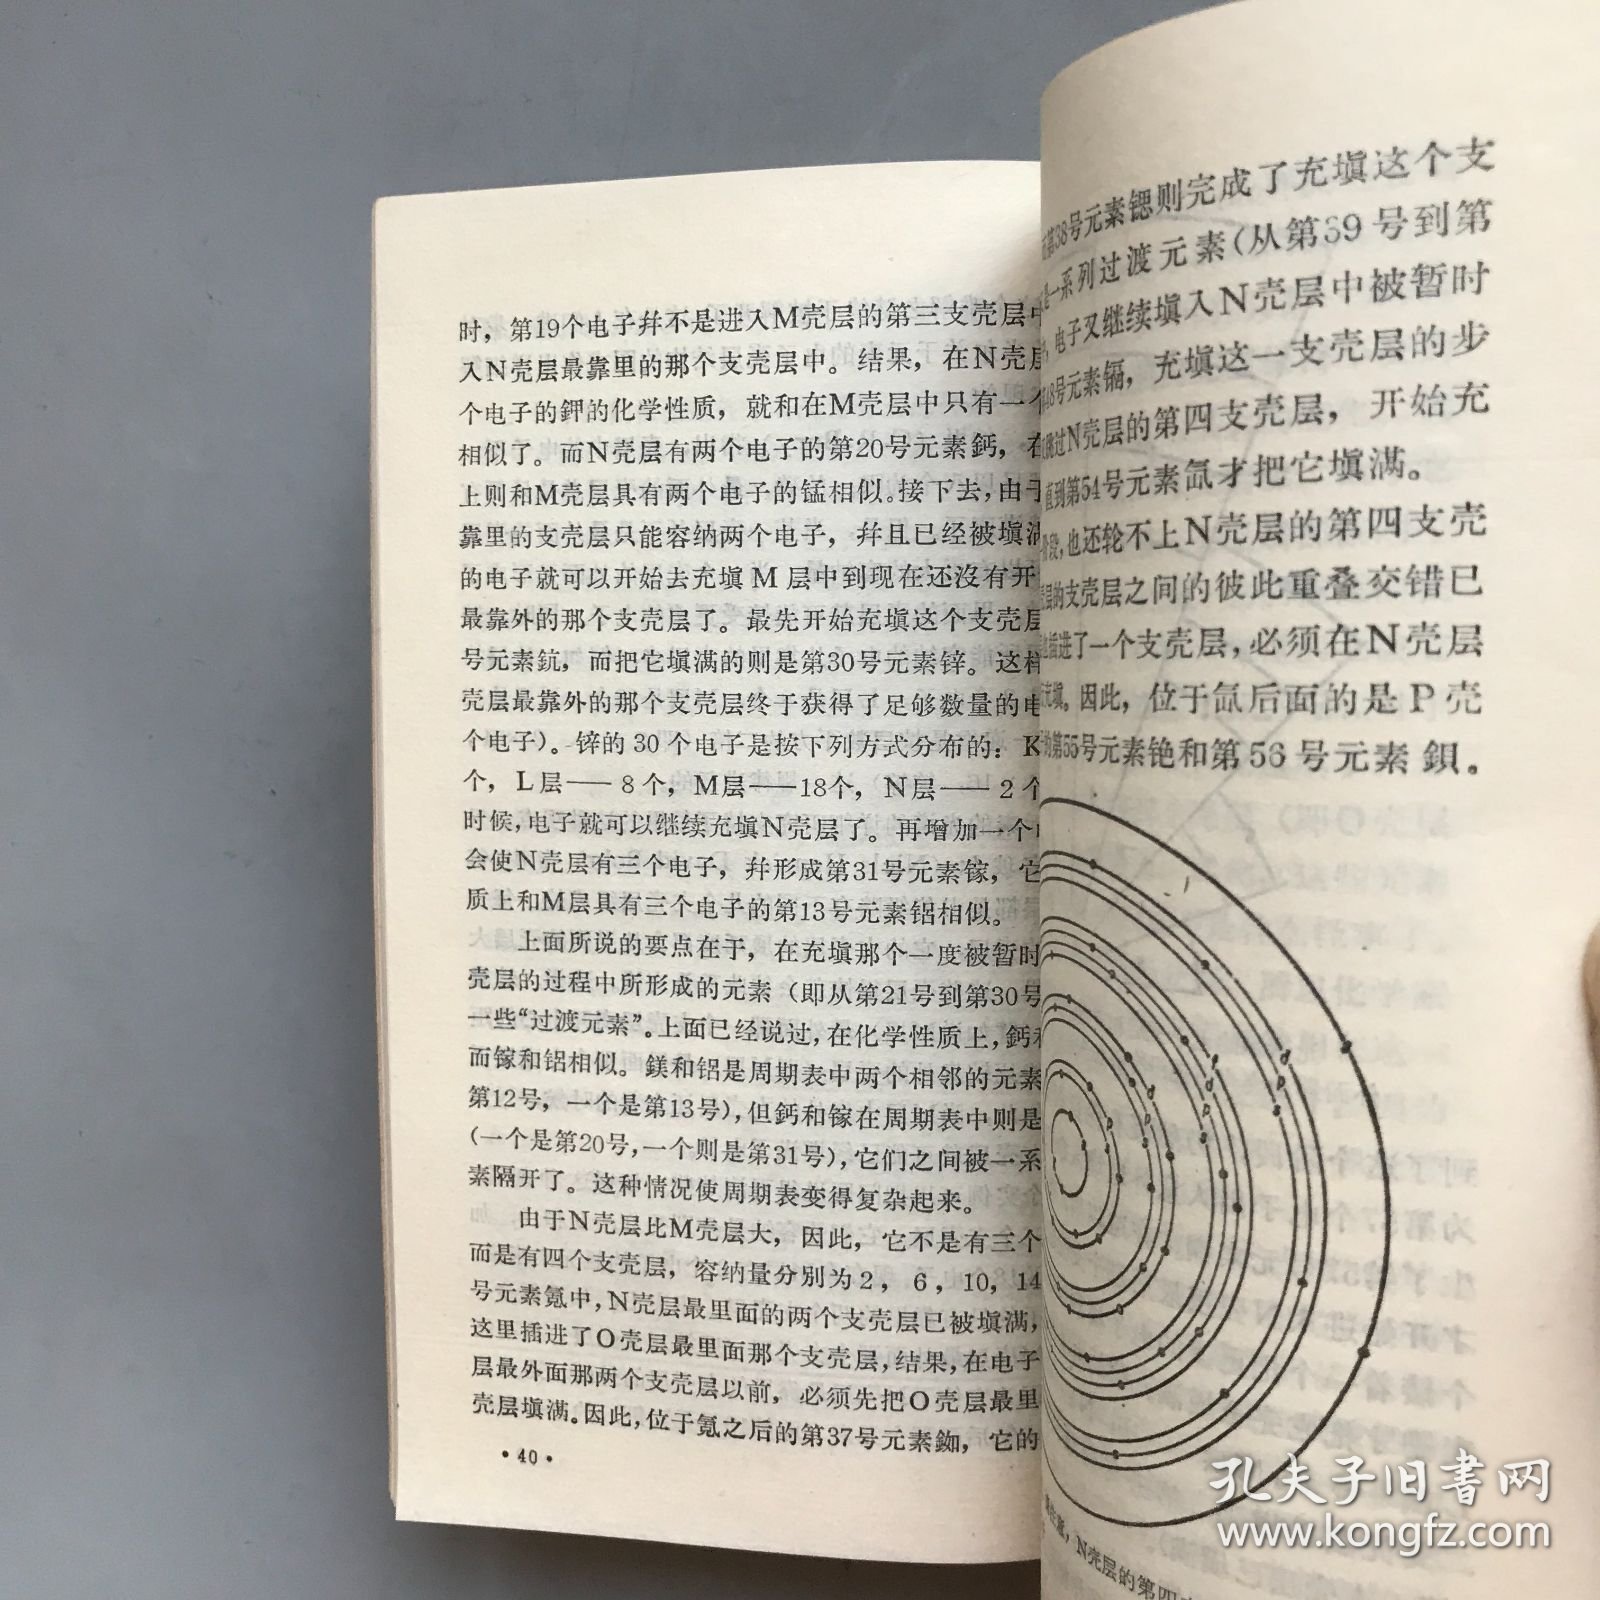 时，第19个电子幷不是进入M壳层的第三支壳层中
入N壳层最靠里的那个支壳层中。结果，在N壳层
个电子的鉀的化学性质，就和在M壳层中只有一个
相似了。而N壳层有两个电子的第20号元素鈣，在
上则和M壳层具有两个电子的锰相似。接下去，由于
靠里的支壳层只能容纳两个电子，幷且已经被塡满
的电子就可以开始去充塡M层中到现在还沒有开
最靠外的那个支壳层了。最先开始充塡这个支壳层
号元素鈧，而把它塡满的则是第30号元素锌。这样
壳层最靠外的那个支壳层终于获得了足够数量的电
个电子)。锌的30个电子是按下列方式分布的：K
个，L层——8个，M层——18个，N层——2个
时候，电子就可以继续充塡N壳层了。再增加一个
会使N壳层有三个电子，幷形成第31号元素镓，它
质上和M层具有三个电子的第13号元素铝相似。
上面所说的要点在于，在充塡那个一度被暂时
壳层的过程中所形成的元素（即从第21号到第30号
一些“过渡元素”。上面已经说过，在化学性质上，鈣和
而镓和铝相似。鎂和铝是周期表中两个相邻的元素
第12号，一个是第13号)，但鈣和镓在周期表中则是
(一个是第20号，一个则是第31号)，它们之间被一系
素隔开了。这种情况使周期表变得复杂起来。
由于N壳层比M壳层大，因此，它不是有三个
而是有四个支壳层，容纳量分别为2，6，10，14
号元素氪中，N壳层最里面的两个支壳层已被塡满，
这里插进了O壳层最里面那个支壳层，结果，在电子
层最外面那两个支壳层以前，必须先把O壳层最里
壳层塡满。因此，位于氪之后的第37号元素銣，它的
·40·
第38号元素锶则完成了充塡这个支
是一系列过渡元素(从第39号到第
电子又继续塡入N壳层中被暂时
号元素镉，充塡这一支壳层的步
跳过N壳层的第四支壳层，开始充
直到第54号元素氙才把它塡满。
阶段，也还轮不上N壳层的第四支壳
层的支壳层之间的彼此重叠交错已
插进了一个支壳层，必须在N壳层
充塡。因此，位于氙后面的是P壳
的第55号元素铯和第56号元素鋇。
N壳层的第四
孔夫子旧书网
www.kongfz.com